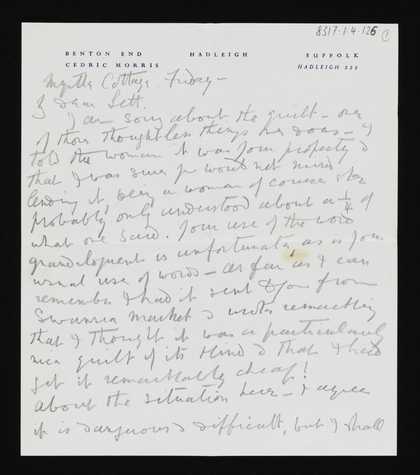 8317.1.4.126
BENTON END HADLEIGH SUFFOLK
CEDRIC MORRIS HADLEIGH 222
Myrtle Cottage Friday –
Dear Lett.
I am sorry about the quilt – one
of those thoughtless things he does – I
told the woman it was your property &
that I was sure you would not mind
lending it being a woman of course she
probably only understood about a ¼ of
what one said. Your use of the word
grandiloquent is unfortunate as is your
usual use of words – as far as I can
remember I had it sent to you from
Swansea Market & wrote remarking
that I thought it was a particularly
nice quilt of its kind & that I had
got it remarkably cheap!
About the situation here – I agree
it is dangerous & difficult, but I shall